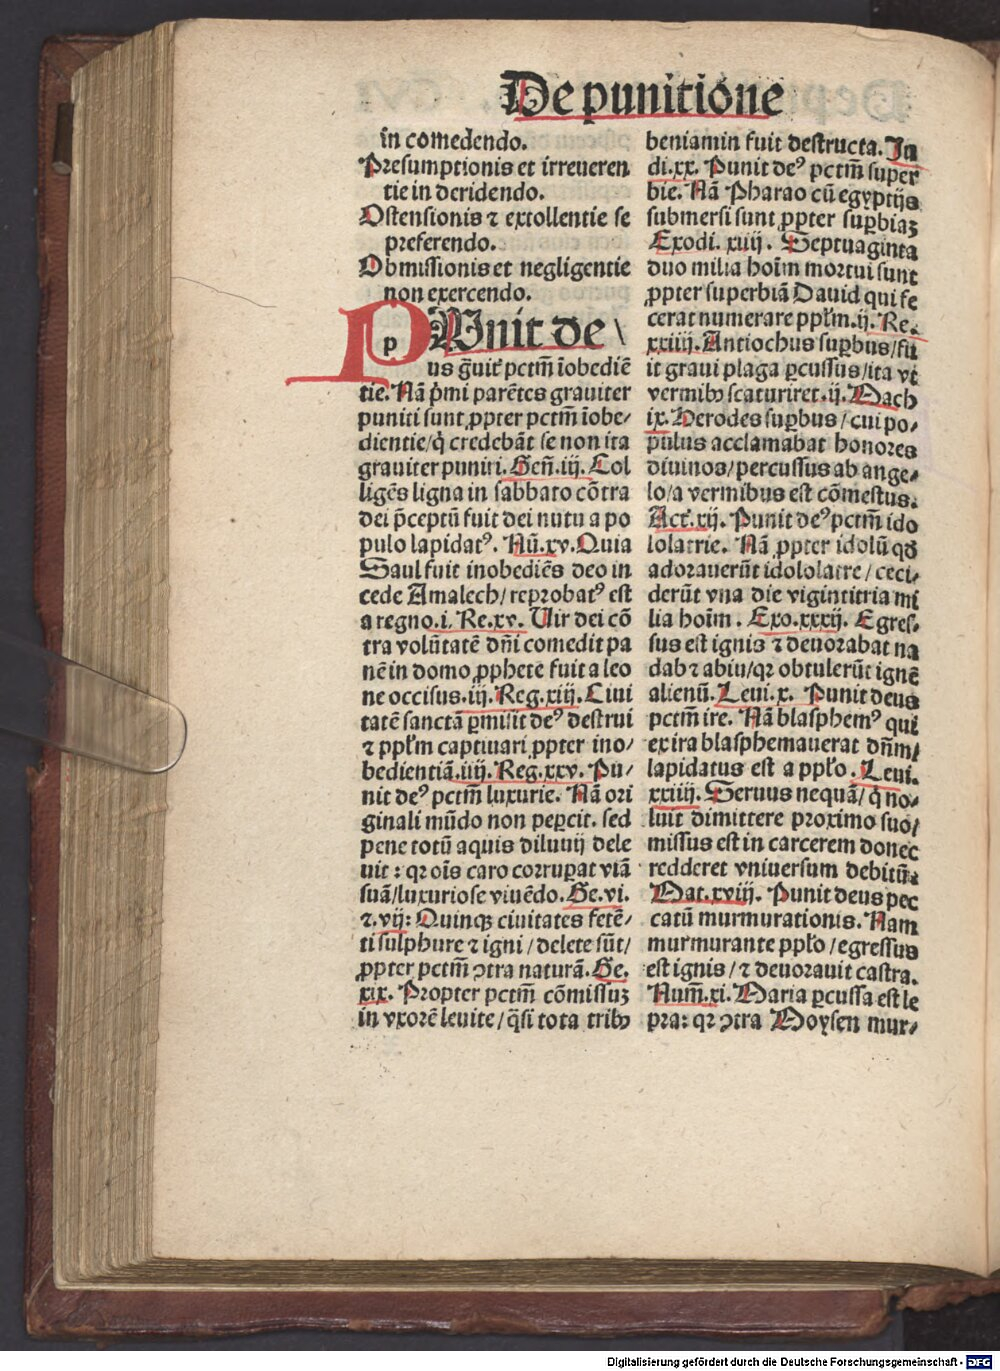 De punitione
in comedendo.
Presumptionis et irreueren
tie in deridendo.
Ostensionis ⁊ extollentie se
preferendo.
Obmissionis et negligentie
non exercendo.
PUnit de
us g̃uit᷑ pctm̃ īobediē
tie. Nā p̓mi parētes grauiter
puniti sunt ꝓpter pctm̃ īobe⸗
dientie/q̓ credebāt se non ita
grauiter puniri. Gen̄. iij. Col
ligēs ligna in sabbato cōtra
dei p̄ceptū fuit dei nutu a po
pulo lapidatꝰ. Nū. xv. Quia
Saul fuit inobediēs deo in
cede Amalech/reprobatꝰ est
a regno. i. Re. xv. Uir dei cō
tra volūtatē dn̄i comedit pa
nē in domo ꝓphete fuit a leo
ne occisus. iij. Reg. xiij. Ciui
tatē sanctā ꝑmisit deꝰ destrui
⁊ ppl̓m captiuari ꝓpter ino⸗
bedientiā. iiij. Reg. xxv. Pu⸗
nit deꝰ pctm̃ luxurie. Nā ori
ginali mūdo non peꝑcit. sed
pene totū aquis diluuij dele
uit : qꝛ oīs caro corruꝑat viā
suā/luxuriose viuēdo. Ge. vi.
⁊. vij: Quinqꝫ ciuitates fetē⸗
ti sulphure ⁊ igni/delete sūt/
ꝓpter pctm̃ ꝯtra naturā. Ge.
xix. Propter pctm̃ cōmissuꝫ
in vxorē leuite/q̄si tota tribꝰ
beniamin fuit destructa. Ju
di. xx. Punit deꝰ pctm̃ super
bie. Nā Pharao cū egyptijs
submersi sunt ꝓpter suꝑbiaꝫ
Exodi. xiiij. Septuaginta
duo milia hoīm mortui sunt
ꝓpter superbiā Dauid qui fe
cerat numerare ppl̓m. ij. Re.
xxiiij. Antiochus suꝑbus/fu
it graui plaga ꝑcussus/ita vt
vermibꝰ scaturiret. ij. Mach
ix. Herodes suꝑbus/cui po⸗
pulus acclamabat honores
diuinos/percussus ab ange⸗
lo/a vermibus est cōmestus.
Act. xij. Punit deꝰ pctm̃ ido
lolatrie. Nā ꝓpter idolū qď
adorauerūt idololatre/ceci⸗
derūt vna die vigintitria mi
lia hoīm. Exo. xxxij. Egres⸗
sus est ignis ⁊ deuorabat na
dab ⁊ abiu/qꝛ obtulerūt ignē
alienū. Leui. x. Punit deus
pctm̃ ire. Nā blasphemꝰ qui
ex ira blasphemauerat dn̄m/
lapidatus est a ppl̓o. Leui.
xxiiij. Seruus nequā/q̓ no⸗
luit dimittere proximo suo/
missus est in carcerem donec
redderet vniuersum debitū.
Mat. xviij. Punit deus pec
catū murmurationis. Nam
murmurante ppl̓o/egressus
est ignis/⁊ deuorauit castra.
Num̄. xi. Maria ꝑcussa est le
pra: qꝛ ꝯtra Moysen mur⸗
Digitalisierung gefördert durch die Deutsche Forschungsgemeinschaft - DFG